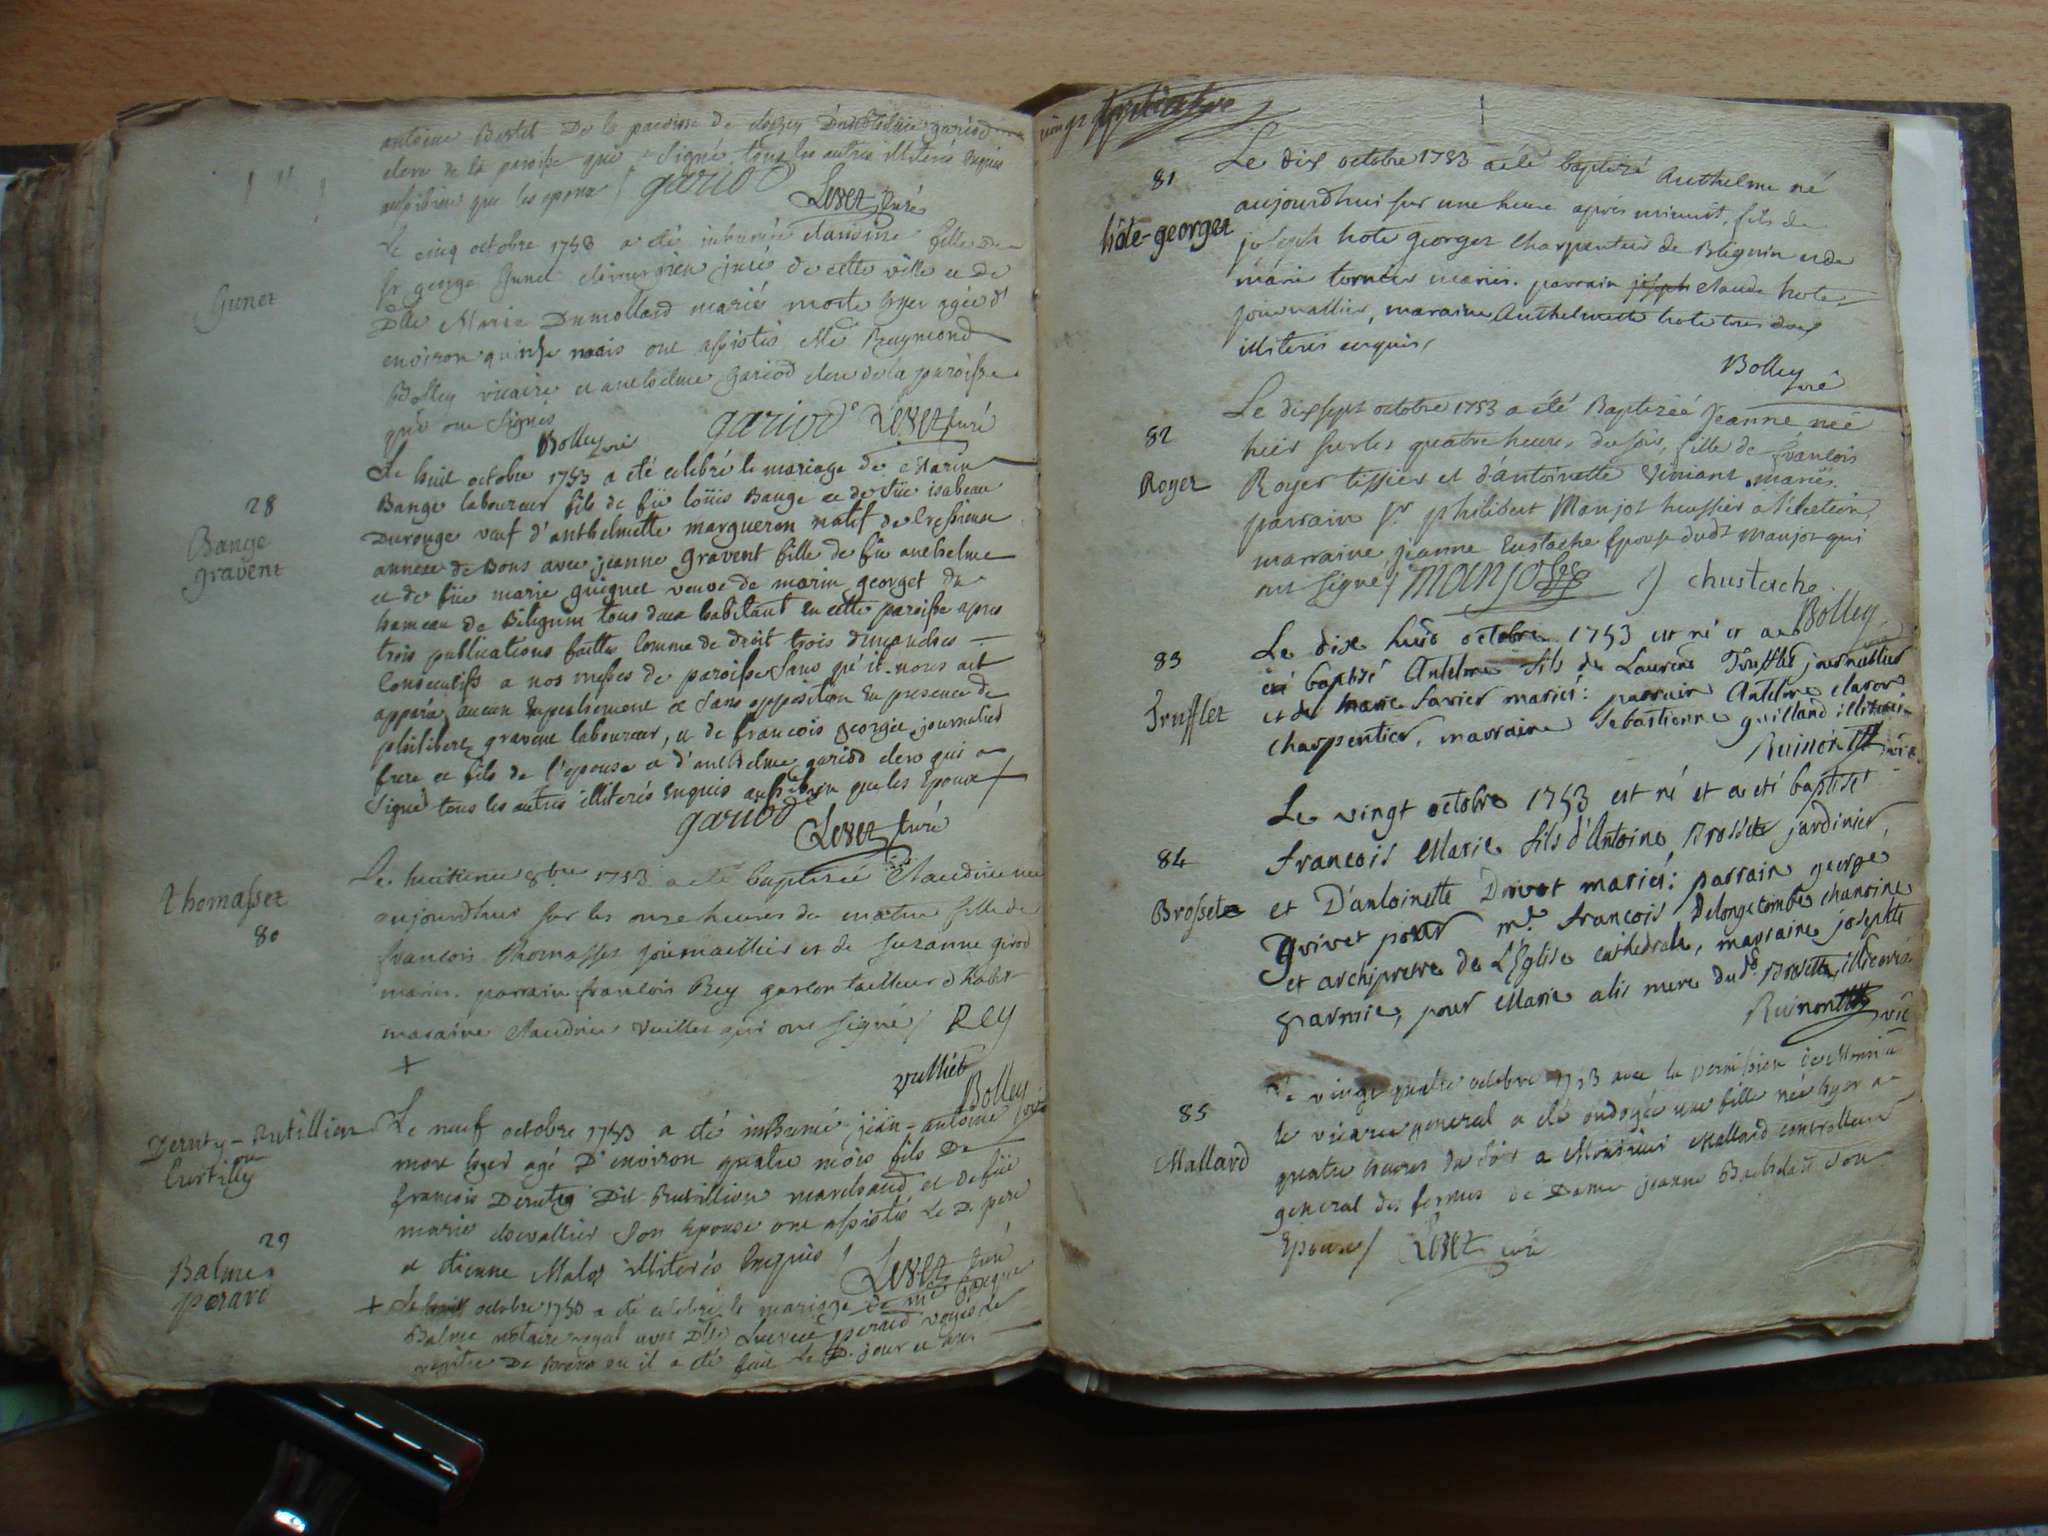 antoine Bertet De la paroisse de Danthelme gariod
clerc de la paroisse qui a signé tous les autres illiterés enquis
aussibien que les epoux / gariod
Levet Curé
Gunet
Le cinq octobre 1753 a été inhumée claudine fille de
Sr george Gunet chirurgien juré de cette ville et de
Dlle Marie Dumollard mariés morte hyer agée d'
environ quinze mois ont assistés Mre Reymond
Bolley vicaire et anthelme gariod clerc de la paroisse
qui ont signés
Bolley vic
gariod Levet Curé
28
Bange
gravent
Le huit octobre 1753 a été celebré le mariage de Marin
Bange laboureur fils de feu loüis Bange et de feüe isabeau
Durouge veuf d'anthelmette margueron natif de
annexe de Bons avec jeanne gravent fille de feu anthelme
et de feue marie guignet veuve de marin georget du
hameau de Bileguin tous deux habitant en cette paroisse apres
trois publications faittes comme de droit trois dimanches
consecutifs a nos messes de paroisse sans qu'il nous ait
apparu aucun empechement et sans opposition en presence de
philibert gravent laboureur, et de francois georget journalier
frere et fils de l'epouse et d'anthelme gariod clerc qui a
signé tous les autres illiterés enquis aussibien que les Epoux
gariod
Levet Curé
Thomasset
80
Le huitieme 8bre 1753 a eté baptisée Claudine née
aujourdhuy sur les onze heures du matin fille de
francois Thomasset journaillier et de suzanne girod
mariés. parrain francois Rey garcon tailleur d'habit
maraine Claudine vuillet qui ont signé / Rey
+
vulliet
Bolley vic
Deruty-Rutillion
ou
Curtilly
Le neuf octobre 1753 a été inhumé jean-antoine
mort hyer agé D'environ quatre mois fils De
francois Deruty Dit Rutillion marchand, et de feüe
marie chevallier son epouse ont assistés Le D. pere
et etienne Malod illiterés Enquis /
Levet Curé
29
Balme
perard
+ Le huit octobre 1753 a été celebré le mariage de me
Balme notaire royal avec Dlle Lucrece perard voyes Le
registre De Brens ou il a été fait Le D. jour et an
81
hôte-georget
Le dix octobre 1753 a été baptizé Anthelme né
aujourdhui sur une heure aprés minuit, fils de
joseph hote georget charpentier de Bileguin et de
marie tornier mariés. parrain joseph claude hote
journallier, maraine Anthelmette hote tous deux
illiterés enquis /
Bolley vic
82
Royer
Le dix sept octobre 1753 a été Baptizée Jeanne née
hier sur les quatre heures du soir, fille de francois
Royer tissier et d'antoinette vimant mariés.
parrain Sr philibert Manjot heussier a l'election,
marraine jeanne Eustache Epouse dudt manjot qui
ont signé / manjot / Ehustache
Bolley vic
83
Trufflet
Le dix huit octobre 1753 est né et a
été baptisé Antelme fils de Laurent Trufflet journallier
et de marie Savier mariés: parrain Antelme claron
charpentier, marraine Sebastienne guilland illiterés
Ruinon vic
84
Brosset
Le vingt octobre 1753 est né et a eté baptisé
francois Marie fils d'Antoine Brosset jardinier,
et D'antoinette Drivet mariés: parrain george
grivet pour mr. francois Delongecombe chanoine
et archipretre de L'Eglise cathedrale, marraine josephte
parmie, pour Marie alis mere dudt Brosset, illiterés
Ruinon vic
85
Mallard
Le vingt quatre octobre 1753 avec la permission de Monsieur
le vicaire general a été ondoyée une fille née hyer a
quatre heures du soir a Monsieur Mallard controlleur
general des fermes et de Dame jeanne son
Epouse / Levet curé